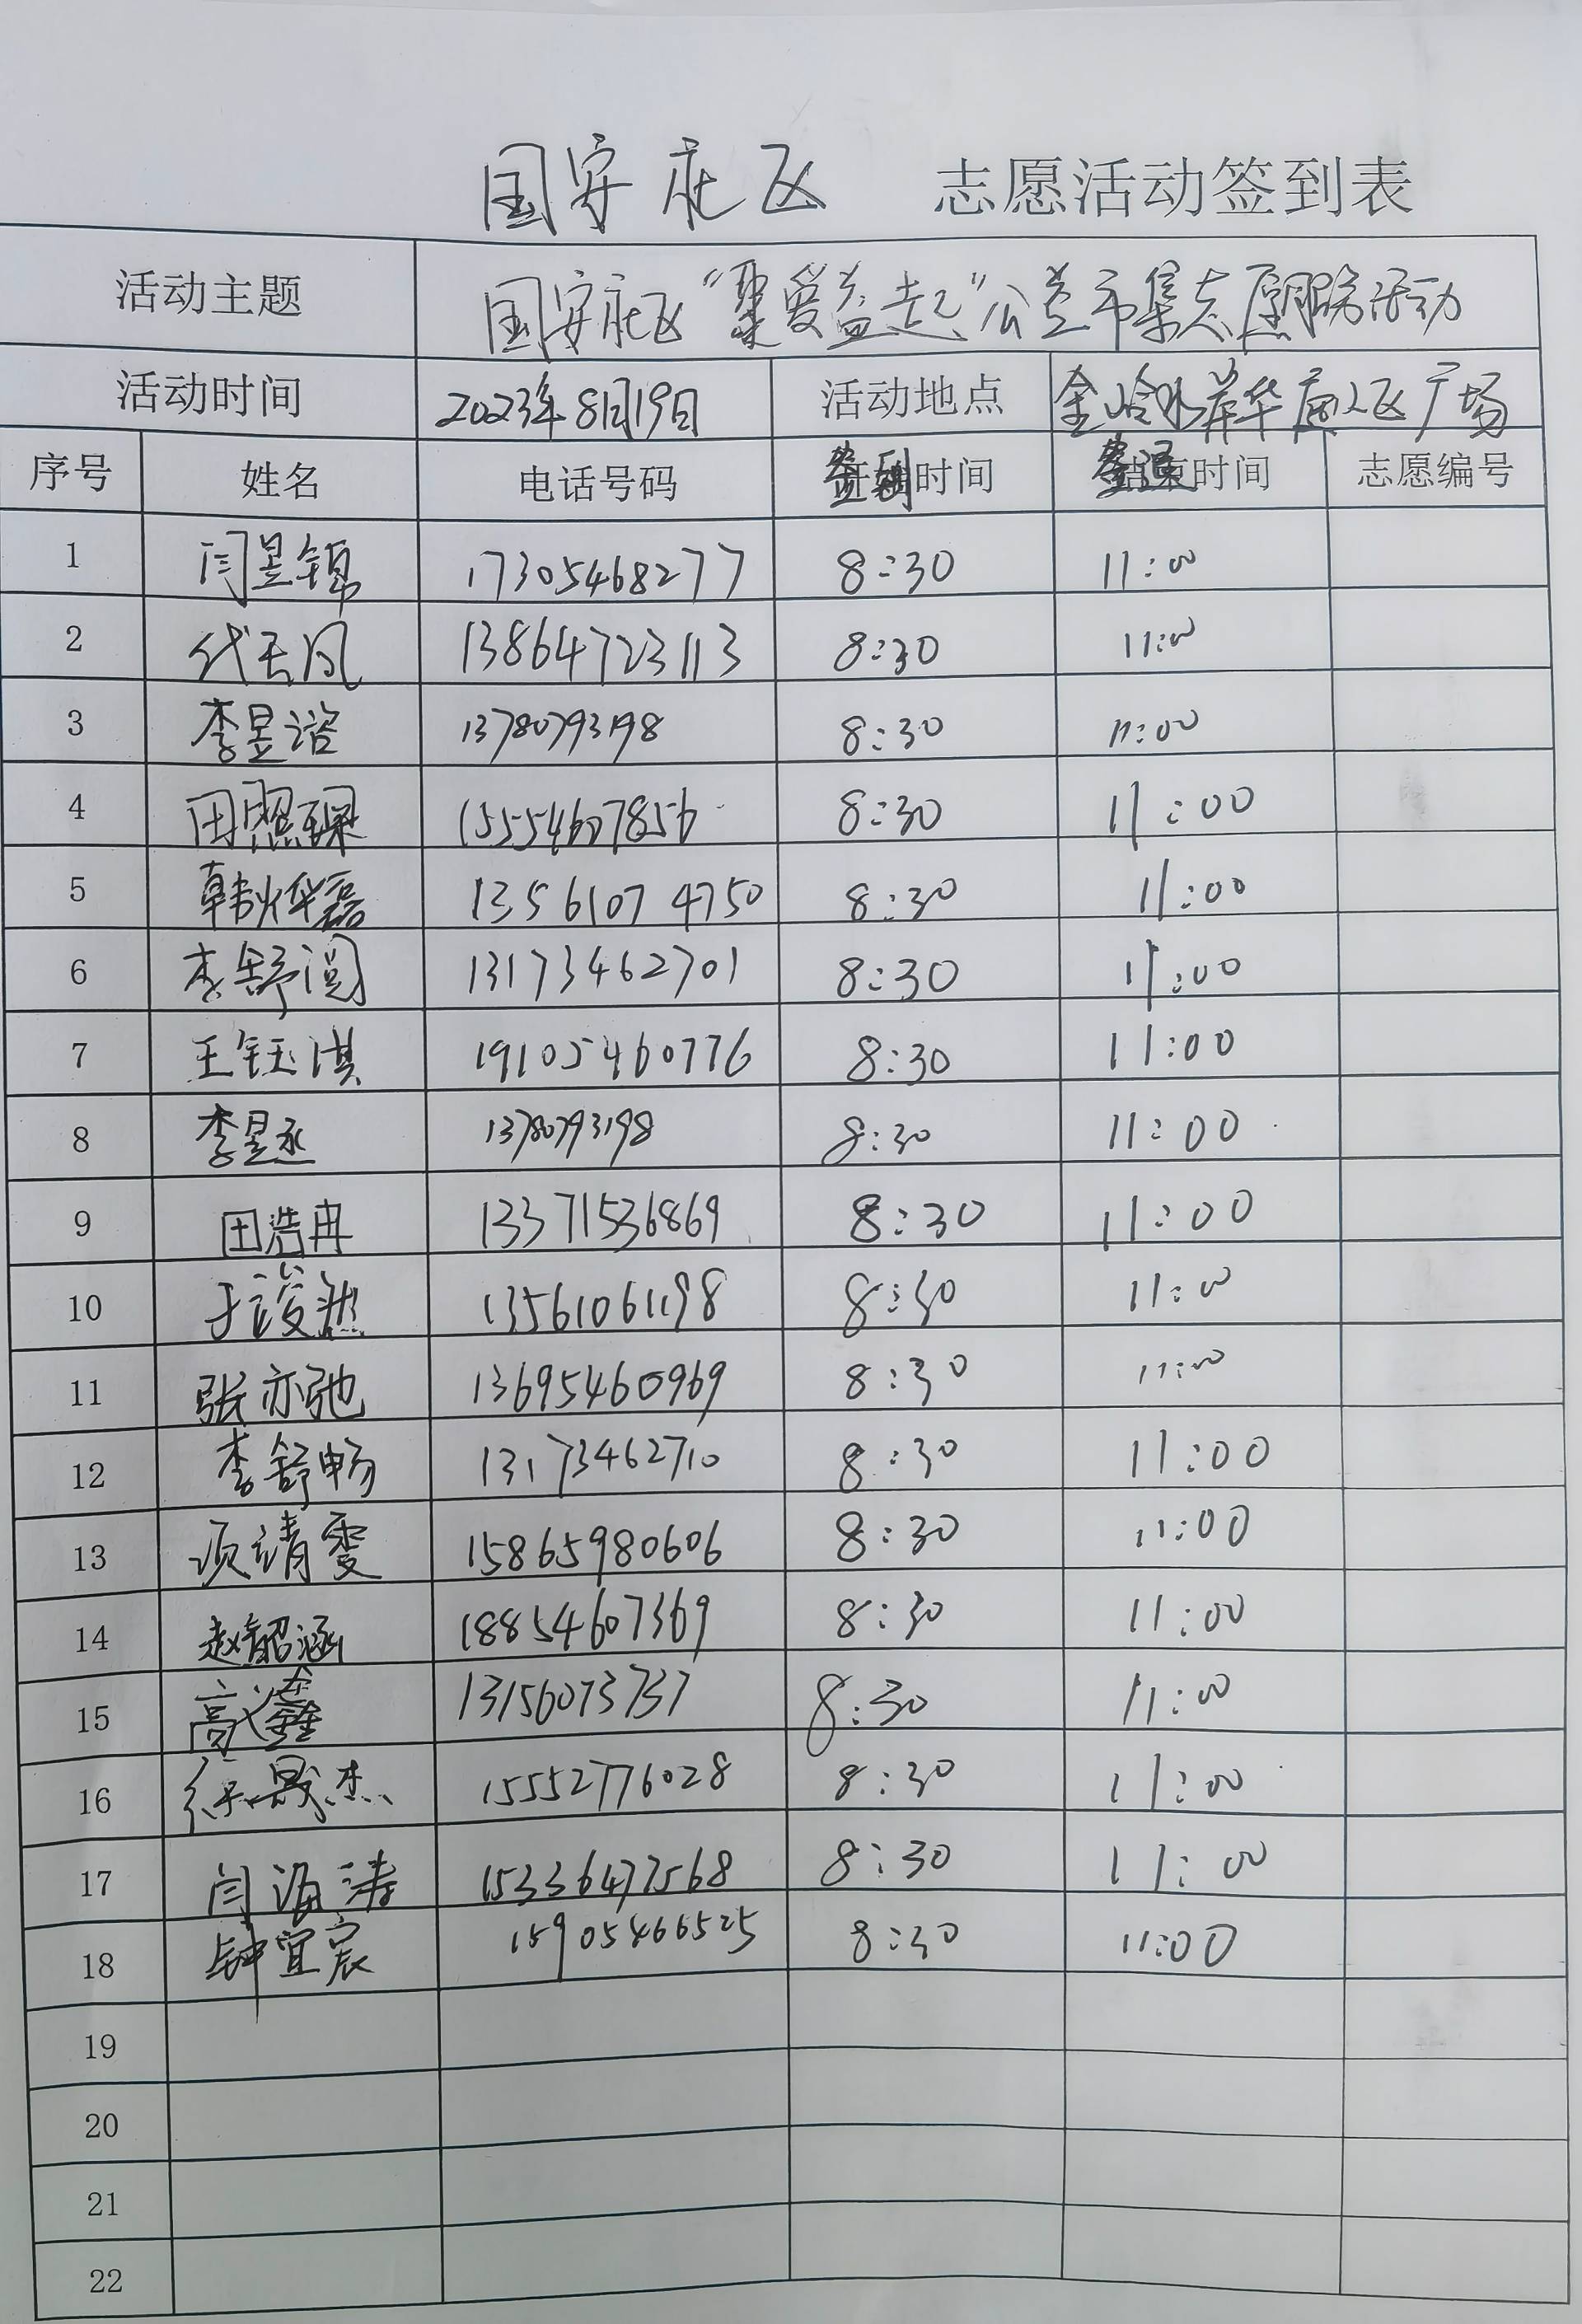 国安社区 志愿活动签到表
活动主题 国安社区“聚爱益起”公益市集志愿服务活动
活动时间 2023年8月19日 活动地点 金哈水萍华庭社区广场
序号 姓名 电话号码 签到时间 签退时间 志愿编号
1 闫昱锦 17305468277 8:30 11:00
2 代天凤 13864723113 8:30 11:00
3 李昱谘 13780793198 8:30 11:00
4 田照琛 15554607856 8:30 11:00
5 韩烨磊 13561074750 8:30 11:00
6 李舒阅 13173462701 8:30 11:00
7 王钰淇 19105460776 8:30 11:00
8 李昱丞 13780793198 8:30 11:00
9 田浩冉 13371536869 8:30 11:00
10 于浚燃 13561061198 8:30 11:00
11 张亦弛 13695460969 8:30 11:00
12 李舒畅 13173462710 8:30 11:00
13 项靖雯 15865980606 8:30 11:00
14 赵韶涵 18854607369 8:30 11:00
15 高鑫 13156073737 8:30 11:00
16 徐晟杰 15552776028 8:30 11:00
17 闫海涛 15336477568 8:30 11:00
18 钟宜宸 15905466525 8:30 11:00
19
20
21
22